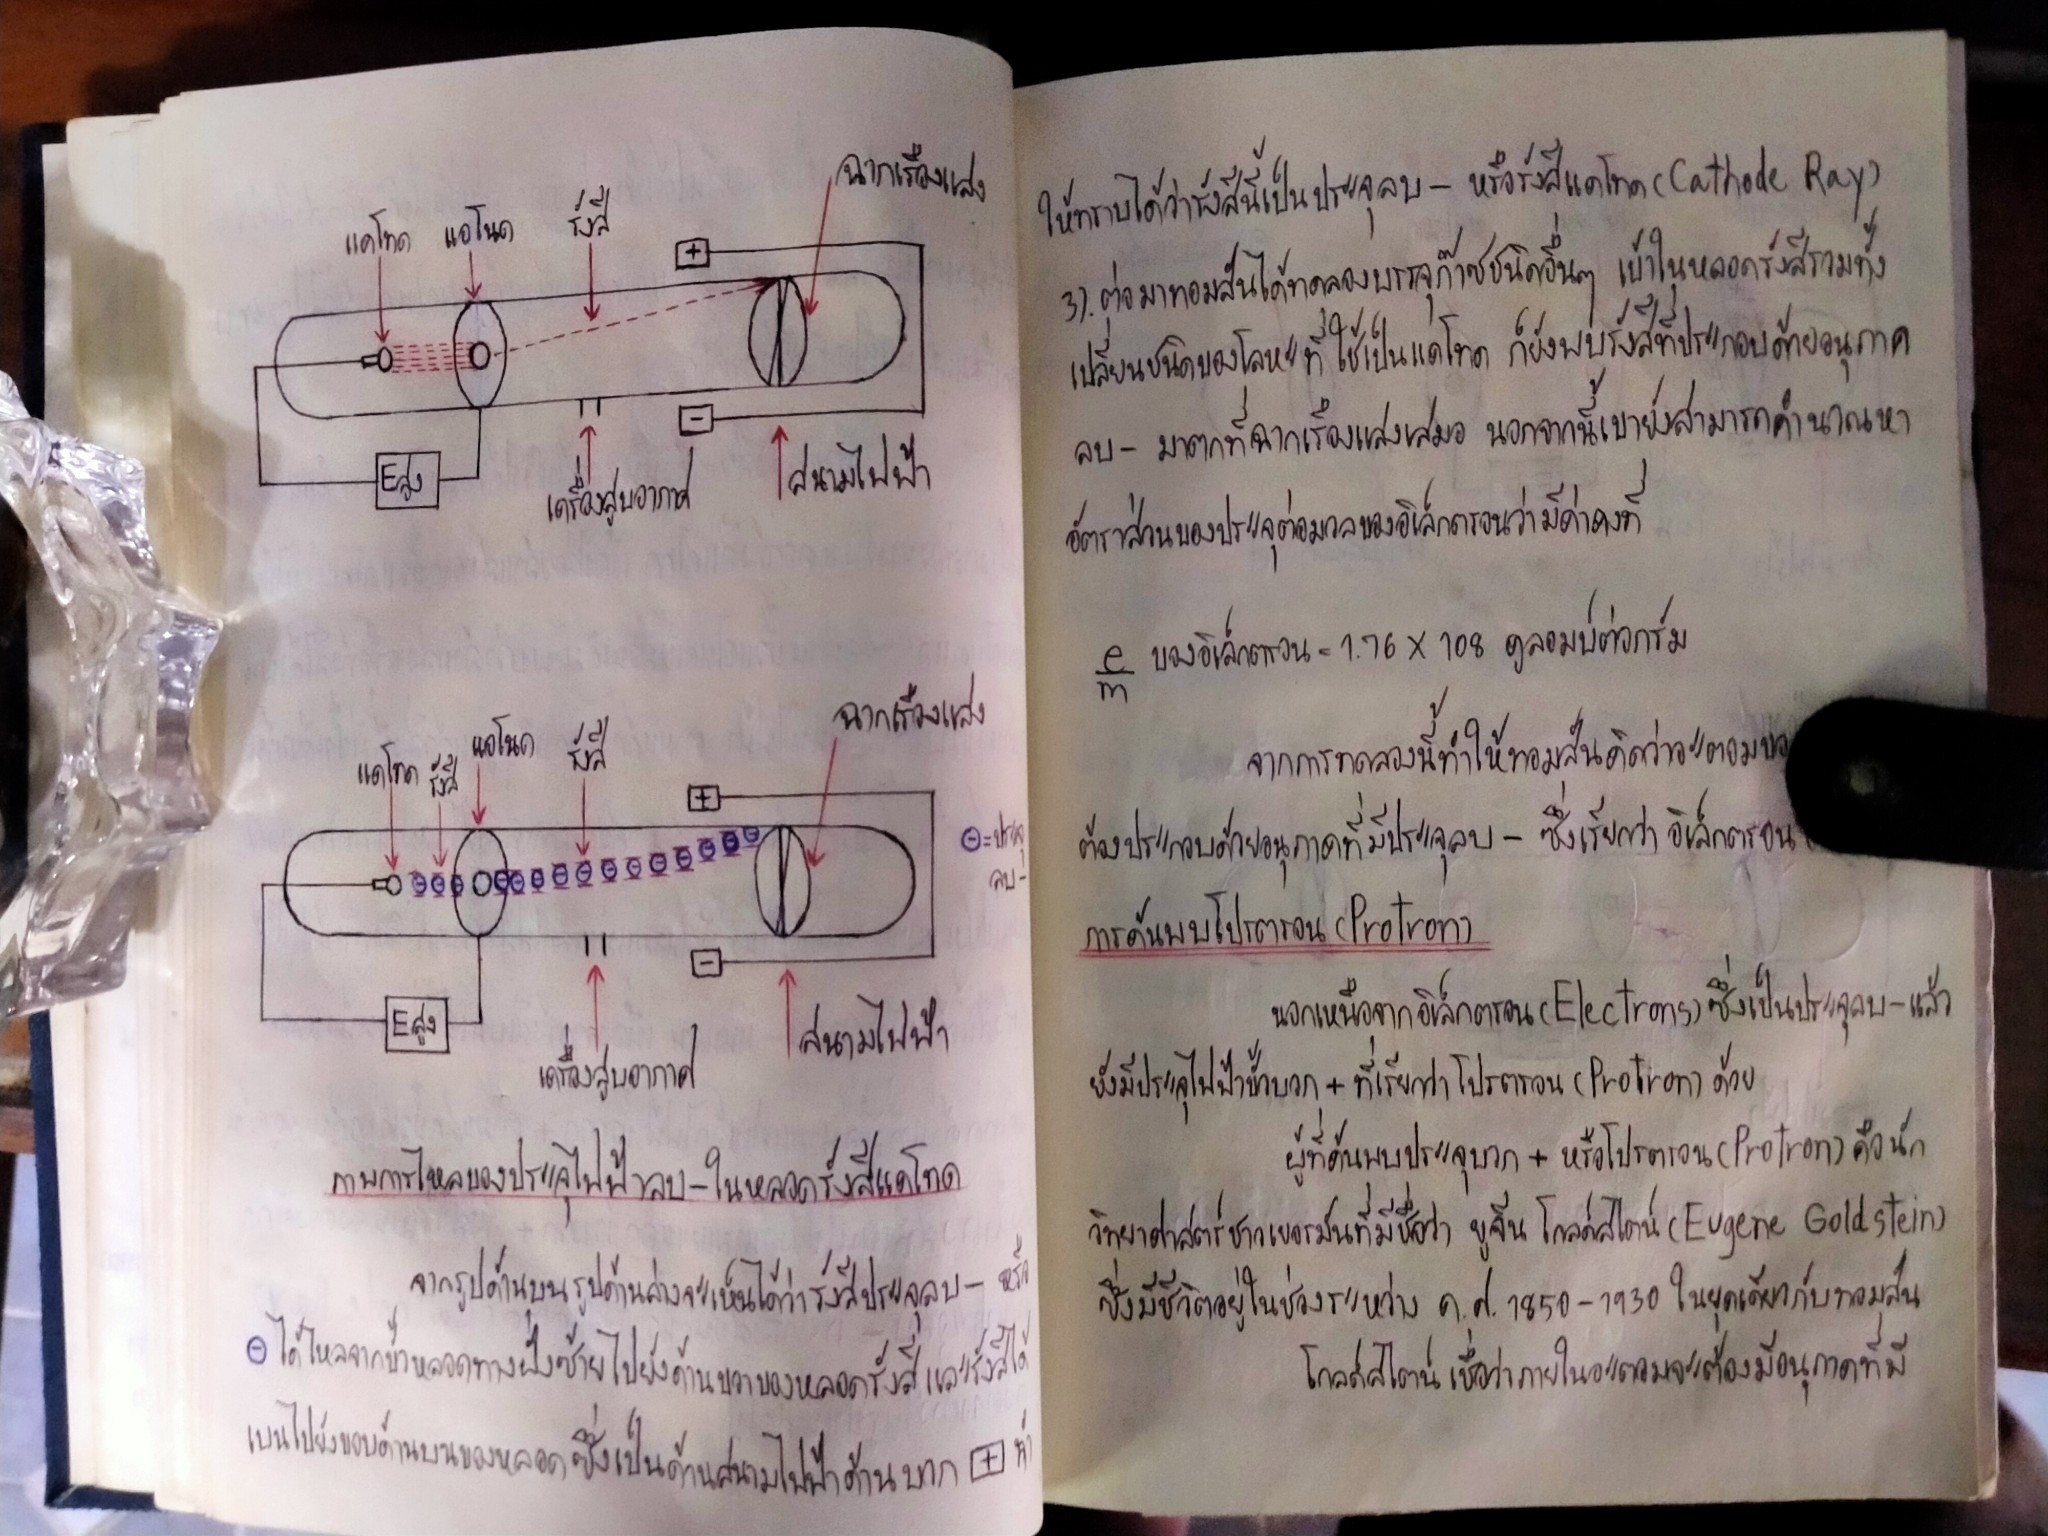 ฉากเรืองแสง
แคโทด แอโนด รังสี
+
-
Eสูง
เครื่องสูบอากาศ สนามไฟฟ้า
ฉากเรืองแสง
แคโทด รังสี แอโนด รังสี
+
⊖=ประจุ
ลบ-
-
Eสูง
เครื่องสูบอากาศ สนามไฟฟ้า
ภาพการไหลของประจุไฟฟ้าลบ-ในหลอดรังสีแคโทด
จากรูปด้านบนรูปด้านล่างจะเห็นได้ว่ารังสีประจุลบ- หรือ
⊖ ได้ไหลจากขั้วหลอดทางฝั่งซ้ายไปยังด้านขวาของหลอดรังสี และรังสีได้
เบนไปยังขอบด้านบนของหลอดซึ่งเป็นด้านสนามไฟฟ้าด้านบวก + ทำ
ให้ทราบได้ว่ารังสีนี้เป็นประจุลบ- หรือรังสีแคโทด(Cathode Ray)
3). ต่อมาทอมสันได้ทดลองบรรจุก๊าซชนิดอื่นๆ เข้าในหลอดรังสีรวมทั้ง
เปลี่ยนชนิดของโลหะที่ใช้เป็นแคโทด ก็ยังพบรังสีที่ประกอบด้วยอนุภาค
ลบ- มาตกที่ฉากเรืองแสงเสมอ นอกจากนี้เขายังสามารถคำนาณหา
อัตราส่วนของประจุต่อมวลของอิเล็กตรอนว่ามีค่าคงที่
e/m ของอิเล็กตรอน = 1.76 X 108 คูลอมบ์ต่อกรัม
จากการทดลองนี้ทำให้ทอมสันคิดว่าอะตอม
ต้องประกอบด้วยอนุภาคที่มีประจุลบ- ซึ่งเรียกว่า อิเล็กตรอน
การค้นพบโปรตรอน(Protron)
นอกเหนือจากอิเล็กตรอน(Electrons)ซึ่งเป็นประจุลบ-แล้ว
ยังมีประจุไฟฟ้าขั้วบวก + ที่เรียกว่าโปรตรอน(Protron) ด้วย
ผู้ที่ค้นพบประจุบวก + หรือโปรตรอน(Protron) คือนัก
วิทยาศาสตร์ชาวเยอรมันที่มีชื่อว่า ยูจีน โกลด์สไตน์(Eugene Goldstein)
ซึ่งมีชีวิตอยู่ในช่วงระหว่าง ค.ศ. 1850-1930 ในยุคเดียวกับทอมสัน
โกลด์สไตน์ เชื่อว่าภายในอะตอมจะต้องมีอนุภาคที่มี